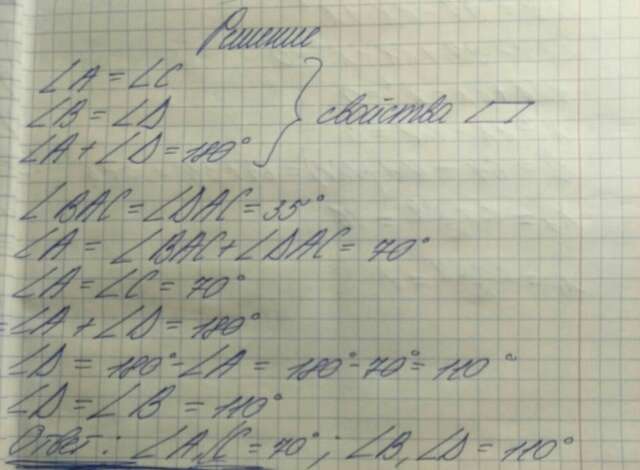 Решение
∠A = ∠C
∠B = ∠D
∠A + ∠D = 180°
свойства ▱
∠BAC = ∠DAC = 35°
∠A = ∠BAC + ∠DAC = 70°
∠A = ∠C = 70°
∠A + ∠D = 180°
∠D = 180° - ∠A = 180° - 70° = 110°
∠D = ∠B = 110°
Ответ: ∠A, ∠C = 70°; ∠B, ∠D = 110°